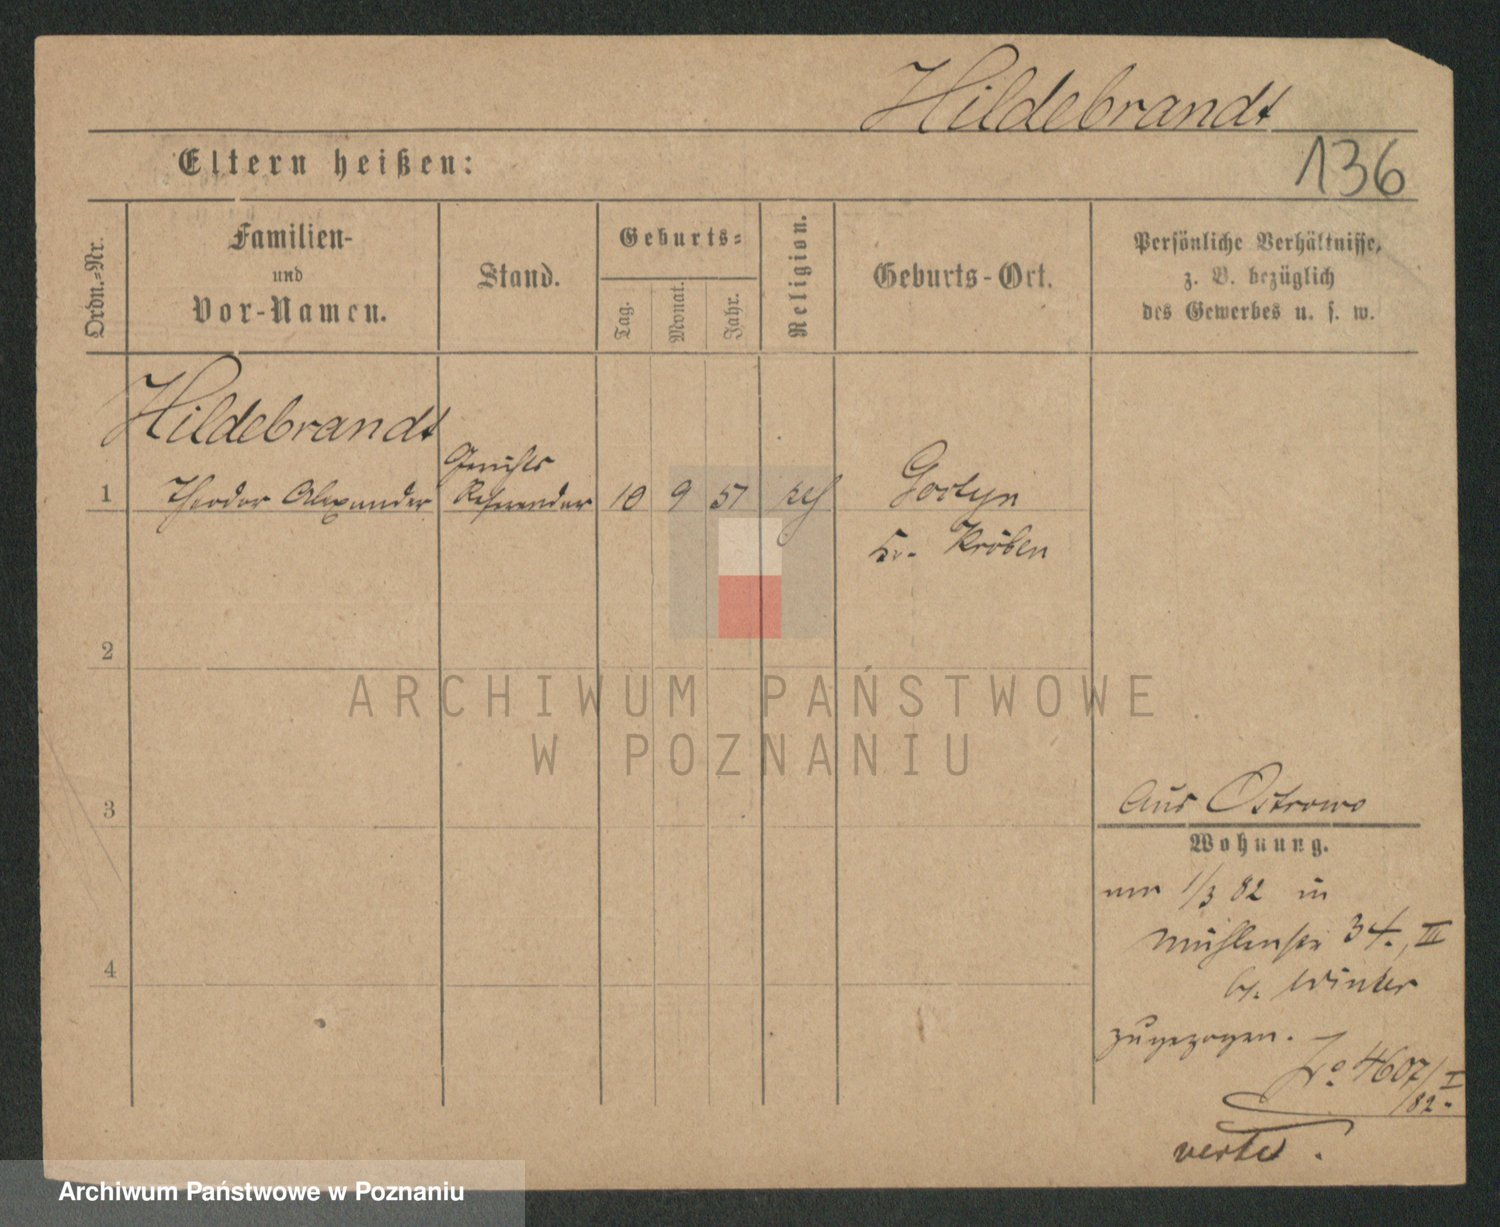 Hildebrandt
Eltern heißen:
136
Ordn.-Nr.
Familien-
und
Vor-Namen.
Stand.
Geburts-
Tag.
Monat.
Jahr.
Religion.
Geburts-Ort.
Persönliche Verhältnisse,
z. B. bezüglich
des Gewerbes u. s. w.
Hildebrandt
Gerichts
1 Theodor Alexander Referendar 10 9 57 ref
Kr. Kröben
2
ARCHIWUM PAŃSTWOWE
W POZNANIU
3
Aus Ostrowo
Wohnung.
am 1/3 82 in
Mühlenstr 34., III
b. Winter
4
zugezogen.
No 4607/I
/82.
verte.
Archiwum Państwowe w Poznaniu